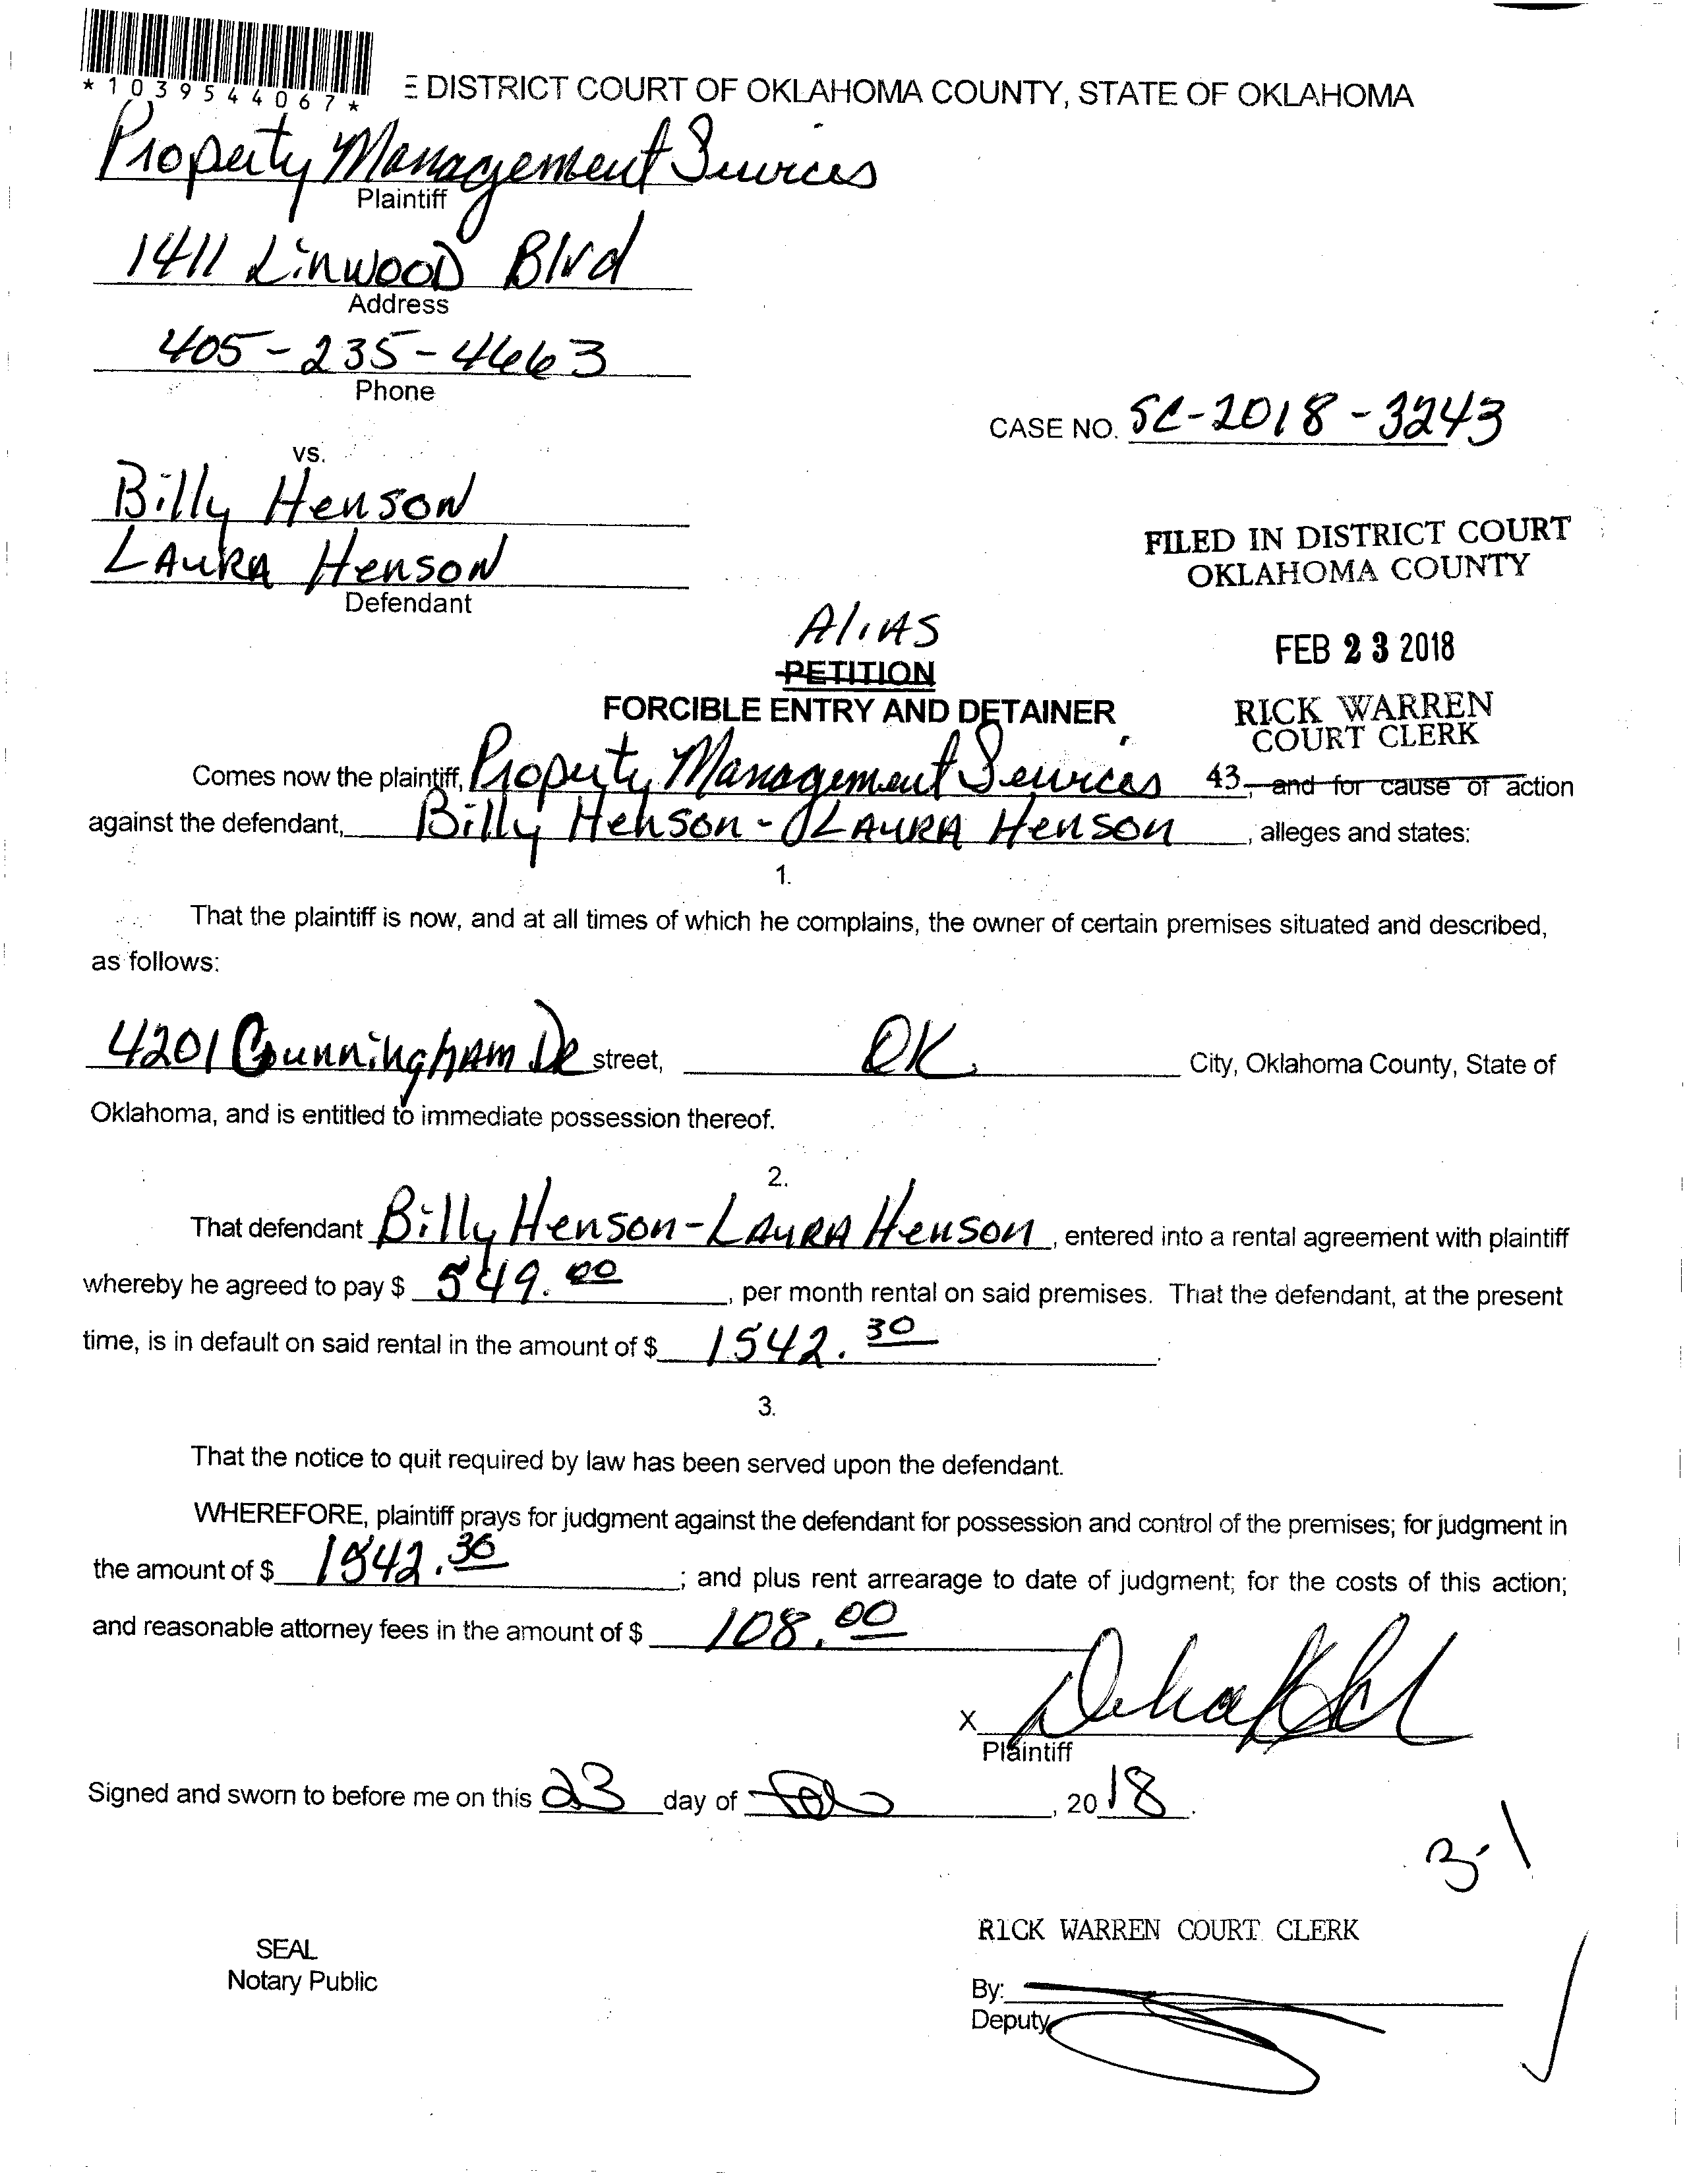 *1039544067*
E DISTRICT COURT OF OKLAHOMA COUNTY, STATE OF OKLAHOMA
Property Management Services
Plaintiff
1411 Linwood Blvd
Address
405-235-4663
Phone
CASE NO. SC-2018-3243
vs.
Billy Henson
LAURA Henson
Defendant
FILED IN DISTRICT COURT
OKLAHOMA COUNTY
FEB 23 2018
RICK WARREN
COURT CLERK
AliAS
PETITION
FORCIBLE ENTRY AND DETAINER
Comes now the plaintiff, Property Management Services 43, and for cause of action
against the defendant, Billy Henson - LAURA Henson, alleges and states:
1.
That the plaintiff is now, and at all times of which he complains, the owner of certain premises situated and described,
as follows:
4201 Cunningham DR street, OK. City, Oklahoma County, State of
Oklahoma, and is entitled to immediate possession thereof.
2.
That defendant Billy Henson-LAURA Henson, entered into a rental agreement with plaintiff
whereby he agreed to pay $ 549.00, per month rental on said premises. That the defendant, at the present
time, is in default on said rental in the amount of $ 1542.30.
3.
That the notice to quit required by law has been served upon the defendant.
WHEREFORE, plaintiff prays for judgment against the defendant for possession and control of the premises; for judgment in
the amount of $ 1542.30; and plus rent arrearage to date of judgment; for the costs of this action;
and reasonable attorney fees in the amount of $ 108.00
X
Plaintiff
Signed and sworn to before me on this 23 day of Feb, 2018.
3-1
SEAL
Notary Public
RICK WARREN COURT CLERK
By:
Deputy